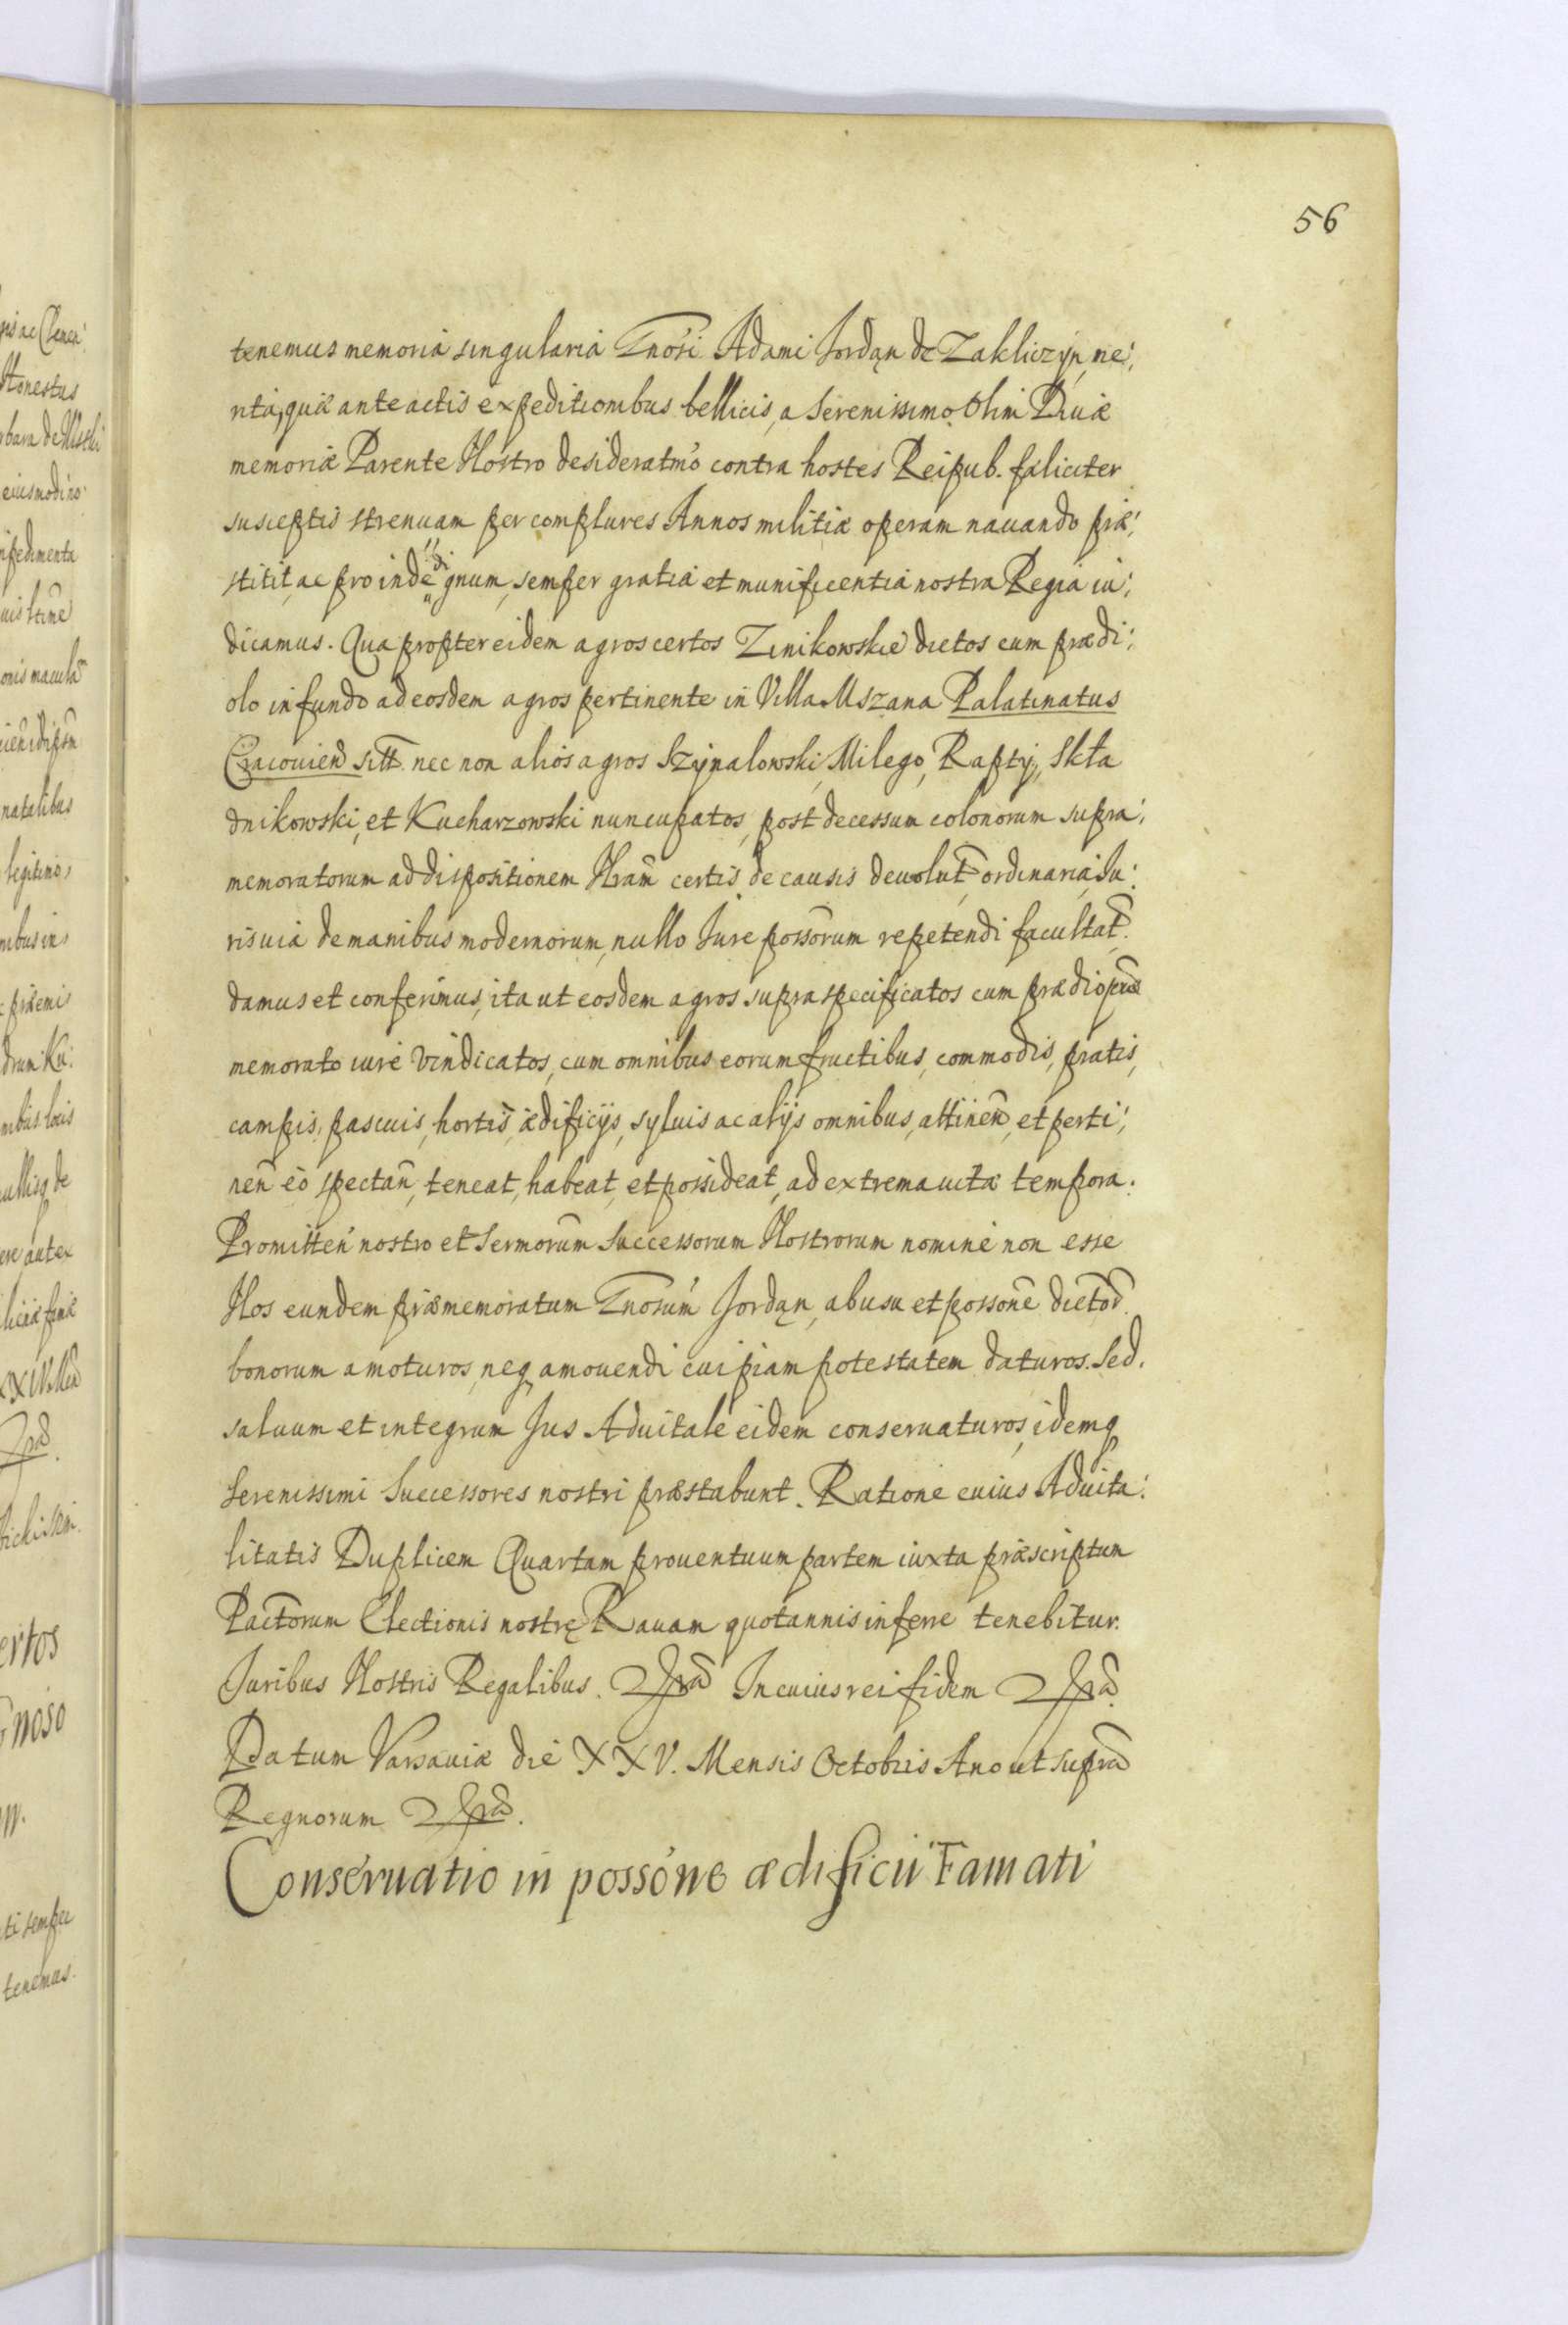 56
tenemus memoria singularia Gnosi Adami Jordąn de Zakliczyn, me:
rita, quæ ante actis expeditionibus bellicis, a Serenissimo olim Diuæ
memoriæ Parente Nostro desideratmo contra hostes Reipub. fæliciter
susceptis strenuam per complures Annos militiæ operam nauando præ:
stitit, ac proinde dignum, semper gratia et munificentia nostra Regia iu:
dicamus. Qua propter eidem agros certos Zinikowskie dictos cum prædi:
olo in fundo ad eosdem agros pertinente in Villa Mszana Palatinatus
Cracouien sitt. nec non alios agros Szynalowski, Milego, Rapty, Skła
dnikowski, et Kucharzowski nuncupatos, post decessum colonorum supra:
memoratorum ad dispositionem Nram certis de causis deuolut ordinaria Ju:
ris uia de manibus modernorum, nullo Jure possorum repetendi facultat.
damus et conferimus, ita ut eosdem agros supra specificatos cum prædio præ
memorato iure vindicatos, cum omnibus eorum fructibus, commodis, pratis,
campis, pascuis, hortis, ædificijs, syluis ac alijs omnibus, attinen, et perti:
nen eo spectan, teneat, habeat, et possideat, ad extrema uitæ tempora.
Promitten nostro et Sermorum Successorum Nostrorum nomine non esse
Nos eundem præmemoratum Gnosum Jordąn, ab usu et possone dictor.
bonorum amoturos, neq amouendi cuipiam potestatem daturos. Sed.
saluum et integrum Jus Aduitale eidem conseruaturos, idemq
Serenissimi Successores nostri præstabunt. Ratione cuius Aduita:
litatis Duplicem Quartam prouentuum partem iuxta præscriptum
Pactorum Electionis nostrę Rauam quotannis inferre tenebitur.
Juribus Nostris Regalibus. Spra In cuius rei fidem Spra.
Datum Varsauiæ die XXV. Mensis Octobris Ano ut supra
Regnorum Spra.
Conseruatio in possone ædificii Famati